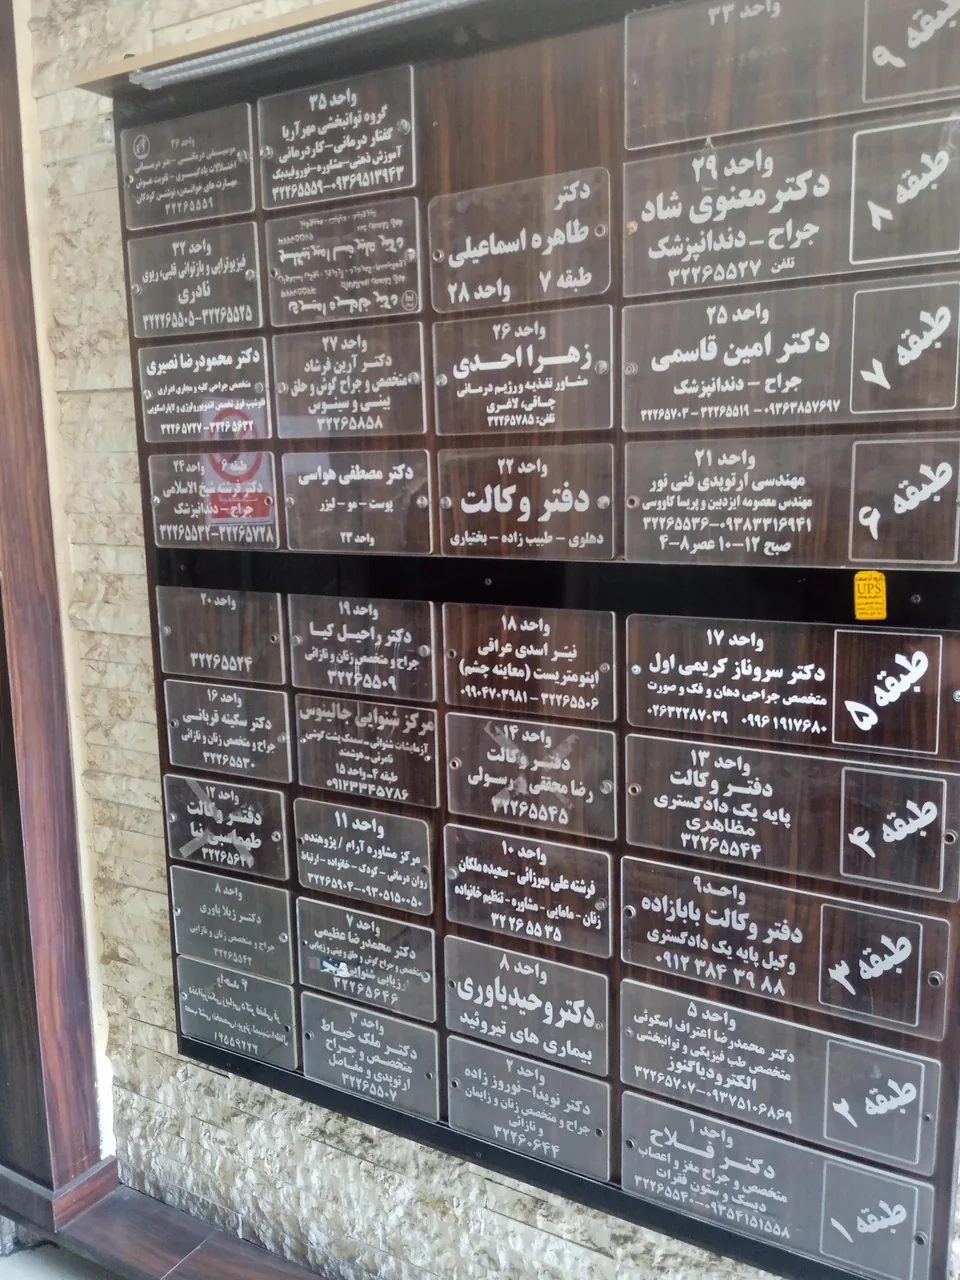 طبقه ۹
واحد ۳۳
واحد ۳۵
گروه توانبخشی مهرآریا
گفتار درمانی-کاردرمانی
آموزش ذهنی-مشاوره-نوروفیدبک
۳۲۲۶۵۵۵۹-۰۹۳۶۹۵۱۳۹۴۳
واحد ۳۶
اختلالات یادگیری - تقویت هوش
مهارت های خواندن، نوشتن کودکان
۳۲۲۶۵۵۵۹
طبقه ۸
واحد ۲۹
دکتر معنوی شاد
جراح - دندانپزشک
تلفن ۳۲۲۶۵۵۲۷
دکتر
طاهره اسماعیلی
طبقه ۷ واحد ۲۸
واحد ۳۲
فیزیوتراپی و بازتوانی قلبی، ریوی
نادری
۳۲۲۶۵۵۰۵-۳۲۲۶۵۵۲۵
طبقه ۷
واحد ۲۵
دکتر امین قاسمی
جراح - دندانپزشک
۳۲۲۶۵۷۰۳ - ۳۲۲۶۵۵۱۹ - ۰۹۳۶۳۸۵۷۶۹۷
واحد ۲۶
زهرا احدی
مشاور تغذیه و رژیم درمانی
چاقی، لاغری
تلفن: ۳۲۲۶۵۷۸۵
واحد ۲۷
دکتر آرین فرشاد
متخصص و جراح گوش و حلق
بینی و سینوس
۳۲۲۶۵۸۵۸
دکتر محمودرضا نصیری
متخصص جراحی کلیه و مجاری ادراری
فلوشیپ فوق تخصص اندویورولوژی و لاپاراسکوپی
۳۲۲۶۵۷۲۷-۳۲۲۶۵۶۳۲
طبقه ۶
واحد ۲۱
مهندسی ارتوپدی فنی نور
مهندس معصومه ایزدبین و پریسا کاووسی
۳۲۲۶۵۵۳۶-۰۹۳۸۳۳۱۶۹۴۱
صبح ۱۲-۱۰ عصر ۸-۴
واحد ۲۲
دفتر وکالت
دهلوی - طبیب زاده - بختیاری
دکتر مصطفی هواسی
پوست - مو - لیزر
واحد ۲۳
طبقه ۶ واحد ۲۴
دکتر فرشته شیخ الاسلامی
جراح - دندانپزشک
۳۲۲۶۵۵۳۲-۳۲۲۶۵۷۲۸
UPS
طبقه ۵
واحد ۱۷
دکتر سروناز کریمی اول
متخصص جراحی دهان و فک و صورت
۰۲۶۳۲۲۸۷۰۳۹ ۰۹۹۶۱۹۱۷۶۸۰
واحد ۱۸
نیر اسدی عراقی
اپتومتریست (معاینه چشم)
۰۹۹۰۴۷۰۳۹۸۱ - ۳۲۲۶۵۵۰۶
واحد ۱۹
دکتر راحیل کیا
جراح و متخصص زنان و نازائی
۳۲۲۶۵۵۰۹
واحد ۲۰
۳۲۲۶۵۵۲۴
طبقه ۴
واحد ۱۳
دفتر وکالت
پایه یک دادگستری
مظاهری
۳۲۲۶۵۵۴۴
واحد ۱۴
دفتر وکالت
رضا محققی رسولی
۳۲۲۶۵۵۴۵
مرکز شنوایی جالینوس
آزمایشات شنوائی - سمعک پشت گوشی
نامرئی - هوشمند
طبقه ۴ - واحد ۱۵
۰۹۱۲۳۳۴۵۷۸۶
واحد ۱۶
دکتر سکینه قربانی
جراح و متخصص زنان و نازائی
۳۲۲۶۵۵۳۰
طبقه ۳
واحد ۹
دفتر وکالت بابازاده
وکیل پایه یک دادگستری
۰۹۱۲ ۳۸۴ ۳۹ ۸۸
واحد ۱۰
فرشته علی میرزائی - سعیده ملکان
زنان - مامایی - مشاوره - تنظیم خانواده
۳۲ ۲۶ ۵۵ ۳۵
واحد ۱۱
مرکز مشاوره آرام / پژوهنده
روان درمانی - کودک - خانواده - ارتباط
۳۲۲۶۵۹۰۲-۰۹۳۰۵۱۵۰۰۵۰
واحد ۱۲
دفتر وکالت
طبقه ۲
واحد ۵
دکتر محمدرضا اعتراف اسکوئی
متخصص طب فیزیکی و توانبخشی
الکترودیاگنوز
۳۲۲۶۵۷۰۷-۰۹۳۷۵۱۰۶۸۶۹
واحد ۸
دکتر وحید یاوری
بیماری های تیروئید
واحد ۷
دکتر محمدرضا عظیمی
متخصص و جراح گوش و حلق و بینی و زیبایی
ارزیابی شنوایی
۳۲۲۶۵۶۴۶
واحد ۸
دکتر ژیلا یاوری
جراح و متخصص زنان و نازایی
۳۲۲۶۵۵۴۲
طبقه ۱
واحد ۱
دکتر فلاح
متخصص و جراح مغز و اعصاب
دیسک و ستون فقرات
۳۲۲۶۵۵۴۰-۰۹۳۵۴۱۵۱۵۵۸
واحد ۲
دکتر نویدا - نوروز زاده
جراح و متخصص زنان و زایمان
و نازائی
۳۲۲۶۰۶۴۴
واحد ۳
دکتر ملک خیاط
متخصص و جراح
ارتوپدی و مفاصل
۳۲۲۶۵۵۰۷